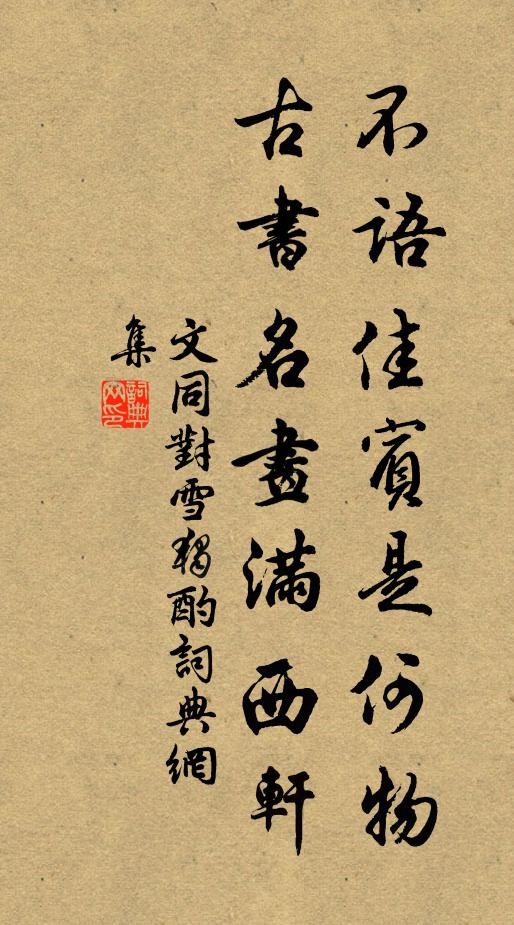 不語佳賓是何物
古書名畫滿西軒
文同對雪獨酌詞典網
集
詞典
网印